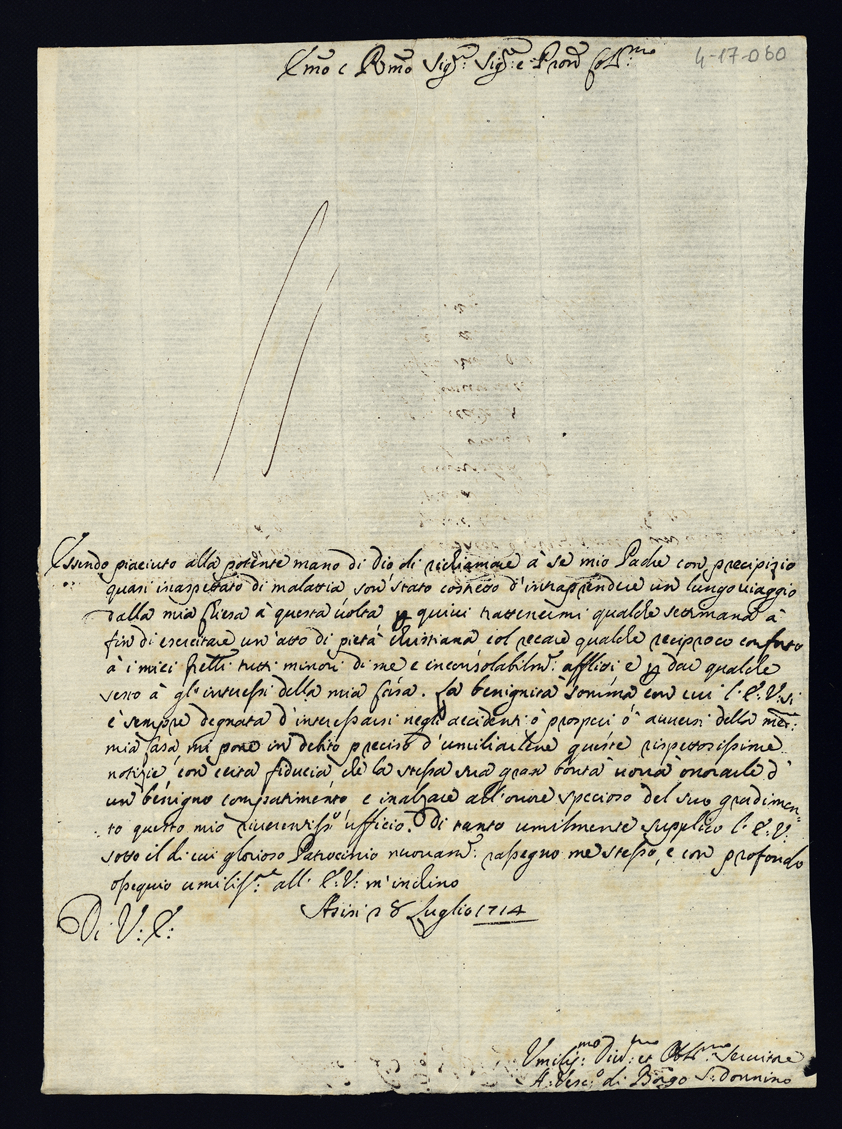 Emo e Rmo Sigr: Sigr: e Pron Colmo
4-17-060
Essendo piaciuto alla potente mano di Dio di richiamare à se mio Padre con precipizio
quasi inaspettato di malattia son stato costretto d'intraprendere un lungo viaggio
dalla mia Chiesa à questa volta, e quivi trattenermi qualche settimana à
fin di esercitare un'atto di pietà christiana col recare qualche reciproco conforto
à i miei frelli tutti minori di me e inconsolabilmte: afflitti e p dar qualche
sesto à gl'interessi della mia Casa. La benignità somma con cui l'E: V: si
è sempre degnata d'interessarsi negli accidenti ò prosperi ò avversi della
mia Casa mi pone in debito preciso d'umiliarlene queste rispettosissime
notizie con certa fiducia che la stessa sua gran bontà vorrà onorarle d'
un benigno compatimento e inalzare all'onore specioso del suo gradimen-
to questo mio riverentisso ufficio. Di tanto umilmente supplico l'E: V:
sotto il di cui glorioso Patrocinio nuovamte: rassegno me stesso, e con profondo
ossequio umilisse: all' E: V: m'inchino
Di V: E:
Asisi 28 Luglio 1714
Umilissmo Divmo et Oblmo: Servitore
A: Vesco: di Borgo S: Donnino